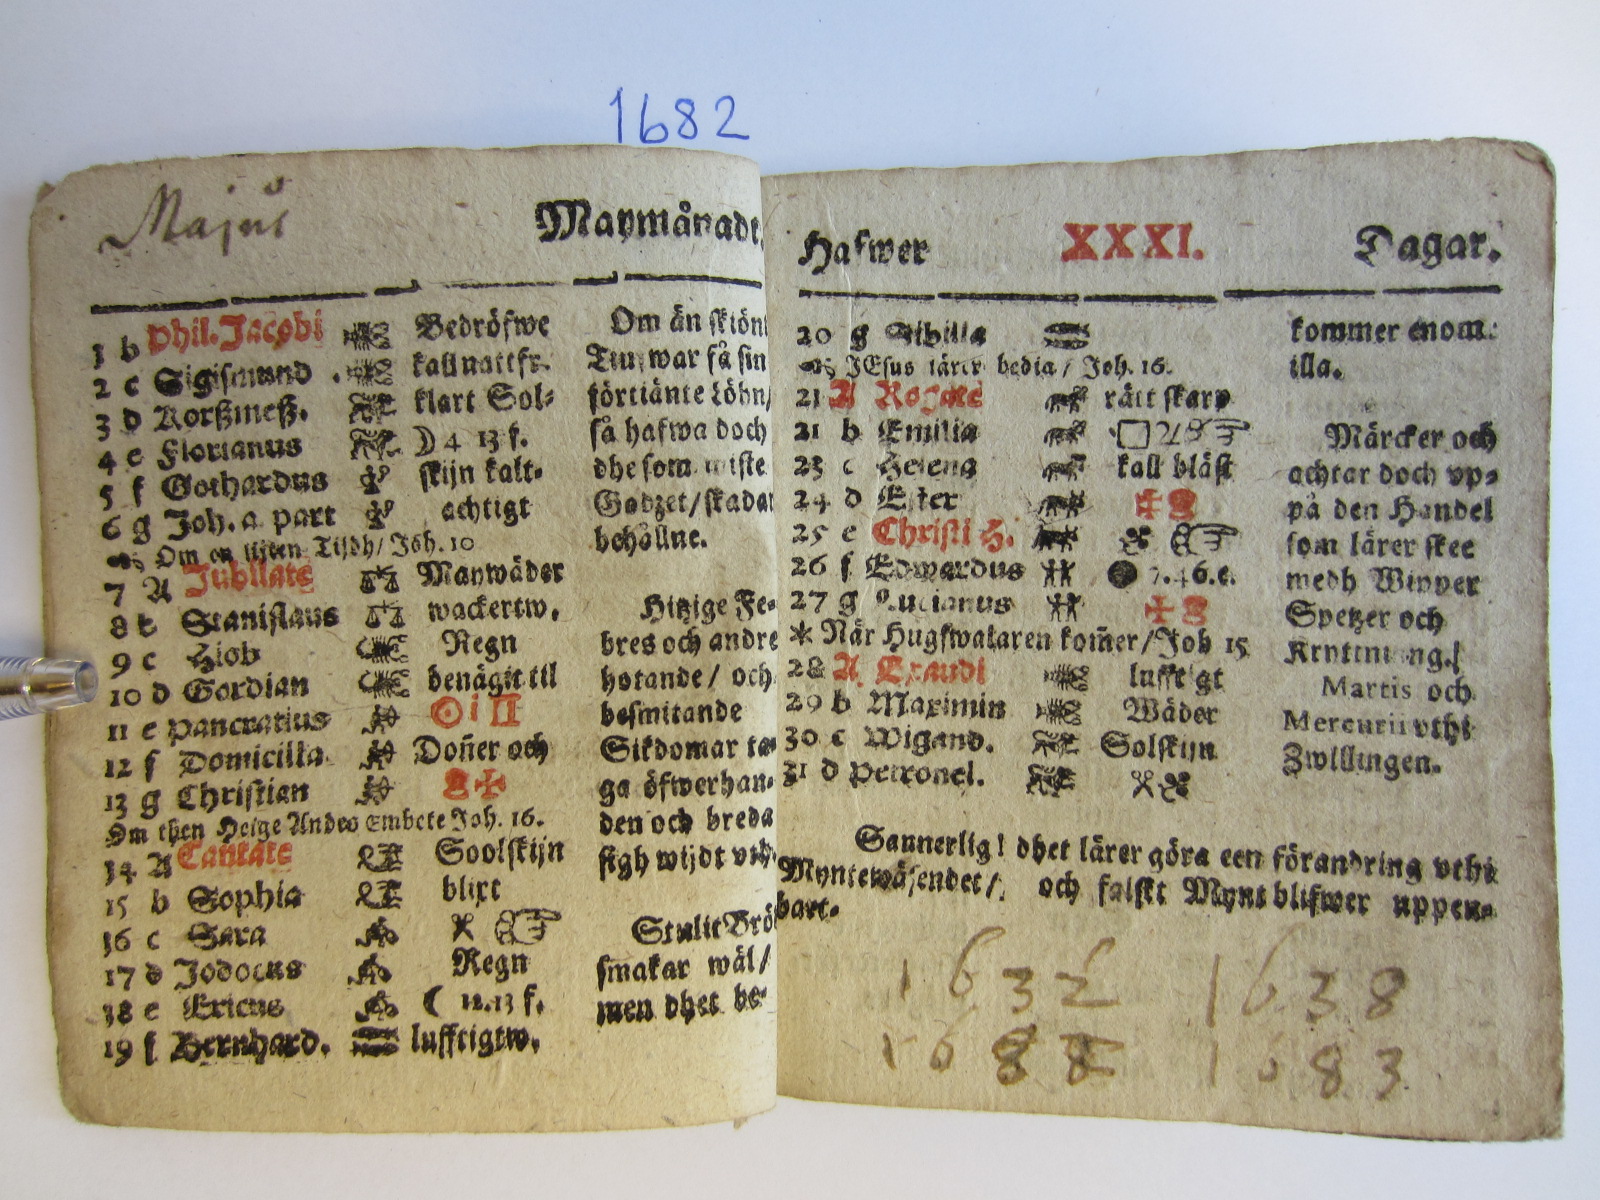 1682
Majus
Maymånadt.
1 b Phil. Jacobi Bedröfwe
2 c Sigismund kall nattfr.
3 d Korßmeß. klart Sol-
4 e Florianus ☽ 4 13 f.
5 f Gothardus skijn kalt-
6 g Joh. a part achtigt
Om en lijten Tijdh/ Joh. 10
7 A Jubilate ♎ Maywäder
8 b Stanislaus ♎ wackertw.
9 c Hiob Regn
10 d Gordian benägit till
11 e Pancratius ☉ i ♊
12 f Domicilla Doñer och
13 g Christian
Om then Helge Andes Embete Joh. 16.
14 A Cantate Soolskijn
15 b Sophia blixt
16 c Sara
17 d Jodocus Regn
18 e Ericus ☾ 12.13 f.
19 f Bernhard. lufftigtw.
Om än skiönt
war så sin
förtiänte Löhn/
så hafwa doch
dhe som miste
Godzet/ skadan
behållne.
Hitzige Fe-
bres och andre
hotande/ och
besmitande
Sikdomar ta-
ga öfwerhan-
den och breda
sigh wijdt vth.
Stulit Brö
smakar wäl/
men dhet be-
Hafwer XXXI. Dagar.
20 g Sibilla
JEsus lärer bedia/ Joh. 16.
21 A Rogate rätt skarp
21 b Emilia □ ♃
23 c Helena kall bläst
24 d Ester
25 e Christi H.
26 f Edwardus 7.46.e.
27 g Lucianus
* När Hugswalaren kom̃er/ Joh 15
28 A Exaudi lufftigt
29 b Maximin Wäder
30 c Wigand. Solskijn
31 d Petronel.
kommer enom
illa.
Märcker och
achtar doch vp-
på den Handel
som lärer skee
medh Wipper
Spetzer och
Martis och
Mercurii vthi
Zwillingen.
Sannerlig! dhet lärer göra een förandring vthi
Myntewäsendet/ och falskt Mynt blifwer uppen-
bart.
1632 1638
1688 1683